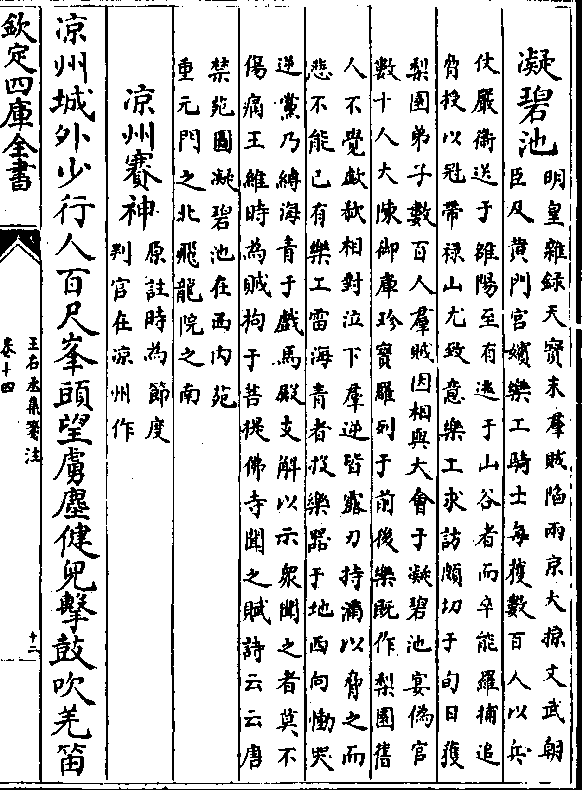 凝碧池
明皇雜録天寳末羣賊陷兩京大掠文武朝
臣及黄門宫嬪樂工騎士每獲數百人以兵
仗嚴衛送于雒陽至有逃于山谷者而卒能羅捕追
脅授以冠帶禄山尤致意樂工求訪頗切于旬日獲
梨園弟子數百人羣賊因相與大會于凝碧池宴偽官
數十人大陳御庫珍寳羅列于前後樂既作梨園舊
人不覺歔欷相對泣下羣逆皆露刃持滿以脅之而
悲不能已有樂工雷海青者投樂器于地西向慟哭
逆黨乃縛海青于戲馬殿支解以示衆聞之者莫不
傷痛王維時為賊拘于菩提佛寺聞之賦詩云云唐
禁苑圖凝碧池在西内苑
重元門之北飛龍院之南
凉州賽神
原註時為節度
判官在凉州作
凉州城外少行人百尺峯頭望虜塵健兒擊鼓吹羌笛
欽定四庫全書
王右丞集箋注
卷十四
十二